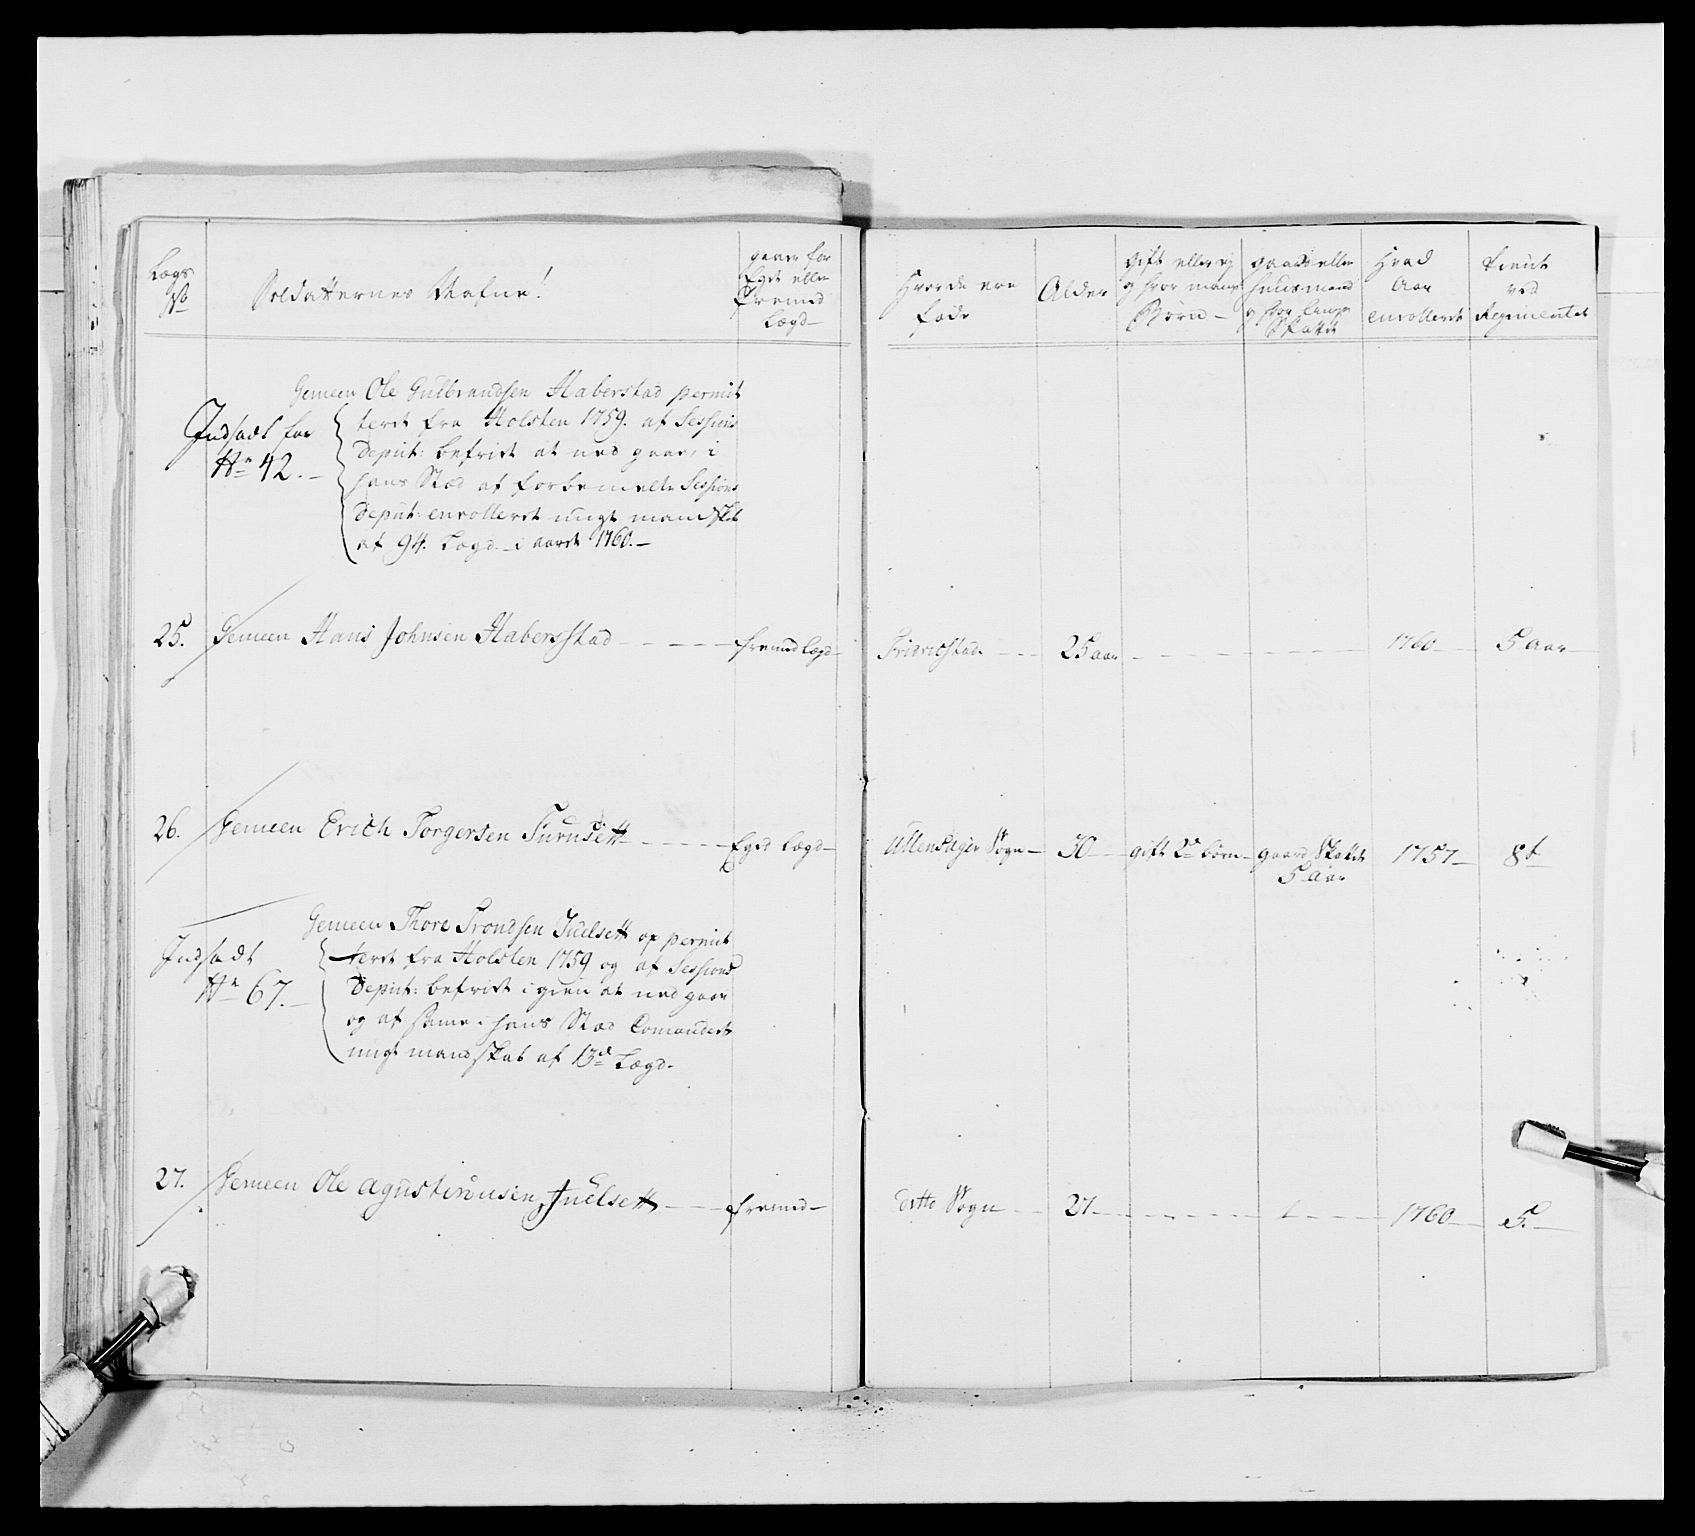 Lægs
No
Soldatternes Nafne!
gaaer for
Eget eller
fremed
Lægd
Hvorde ere
føde
Alder
Gift eller ej
og hvor mange
Børn
gaard eller
huusmand
og hvor længe
Skattet
Hvad
Aar
enrolleret
tient
ved
Regimentet
Gemeen Ole Gulbrandsen Haberstad permit
teret fra Holsten 1759. af Sessions
Deput: befriet at ned gaae, i
hans Stæd af forbemelte Sessions
Deput: enrolleret ungt mandskab
af 94. Lægd - i aaret 1760.
Indsadt for
No 42.
25. Gemeen Hans Johnsen Habersstad fremed Lægd Fridrichstad 25 aar 1760 5 Aar
26. Gemeen Erich Torgersen Furusett Eged Lægd Ullensager Sogn 30 gift 2de børn gaard Skattet 1757 8t
5 Aar
Gemeen Thore Trondsen Juelsett og permit
teret fra Holsten 1759 og af Sessions
Deput: befriet igien at ned gaae
og af same i hans Stæd Comanderet
ungt mandskab af 13de Lægd.
Indsadt
No 67.
27. Gemeen Ole Agustinusen Juelsett fremed ditto Sogn 27 1760 5.